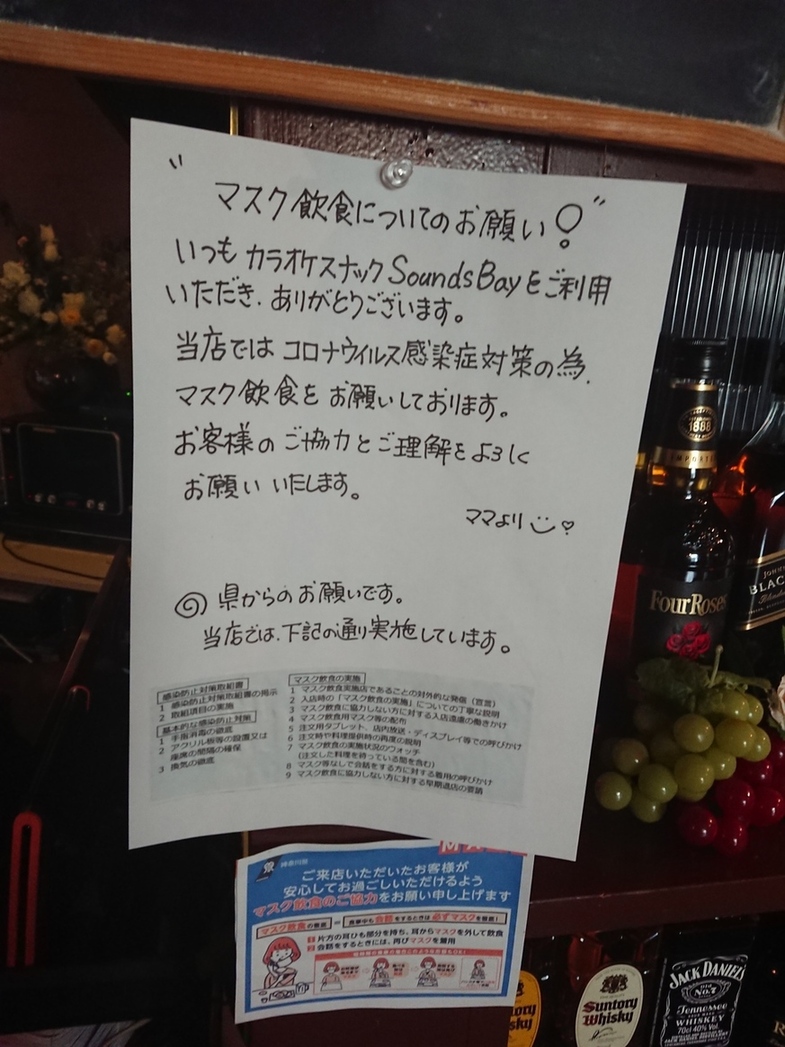 "マスク飲食についてのお願い!"
いつもカラオケスナックSoundsBayをご利用
いただき、ありがとうございます。
当店ではコロナウイルス感染症対策の為、
マスク飲食をお願いしております。
お客様のご協力とご理解をよろしく
お願いいたします。
ママより
◎県からのお願いです。
当店では、下記の通り実施しています。
感染防止対策取組書
1 感染防止対策取組書の掲示
2 取組項目の実施
基本的な感染防止対策
1 手指消毒の徹底
2 アクリル板等の設置又は
座席の間隔の確保
3 換気の徹底
マスク飲食の実施
1 マスク飲食実施店であることの対外的な発信(宣言)
2 入店時の「マスク飲食の実施」についての丁寧な説明
3 マスク飲食に協力しない方に対する入店遠慮の働きかけ
4 マスク飲食用マスク等の配布
5 注文用タブレット、店内放送・ディスプレイ等での呼びかけ
6 注文時や料理提供時の再度の説明
7 マスク飲食の実施状況のウォッチ
(注文した料理を待っている間を含む)
8 マスク等なしで会話をする方に対する着用の呼びかけ
9 マスク飲食に協力しない方に対する早期退店の要請
神奈川県
ご来店いただいたお客様が
安心してお過ごしいただけるよう
マスク飲食のご協力をお願い申し上げます
マスク飲食の徹底 = 食事中も会話をするときは必ずマスクを着用!
1 片方の耳ひも部分を持ち、耳からマスクを外して飲食
2 会話をするときには、再びマスクを着用
1888
FourRoses
BLAC
Suntory
Whisky
JACK DANIEL'S
No.7
Tennessee
WHISKEY
70cl 40% Vol